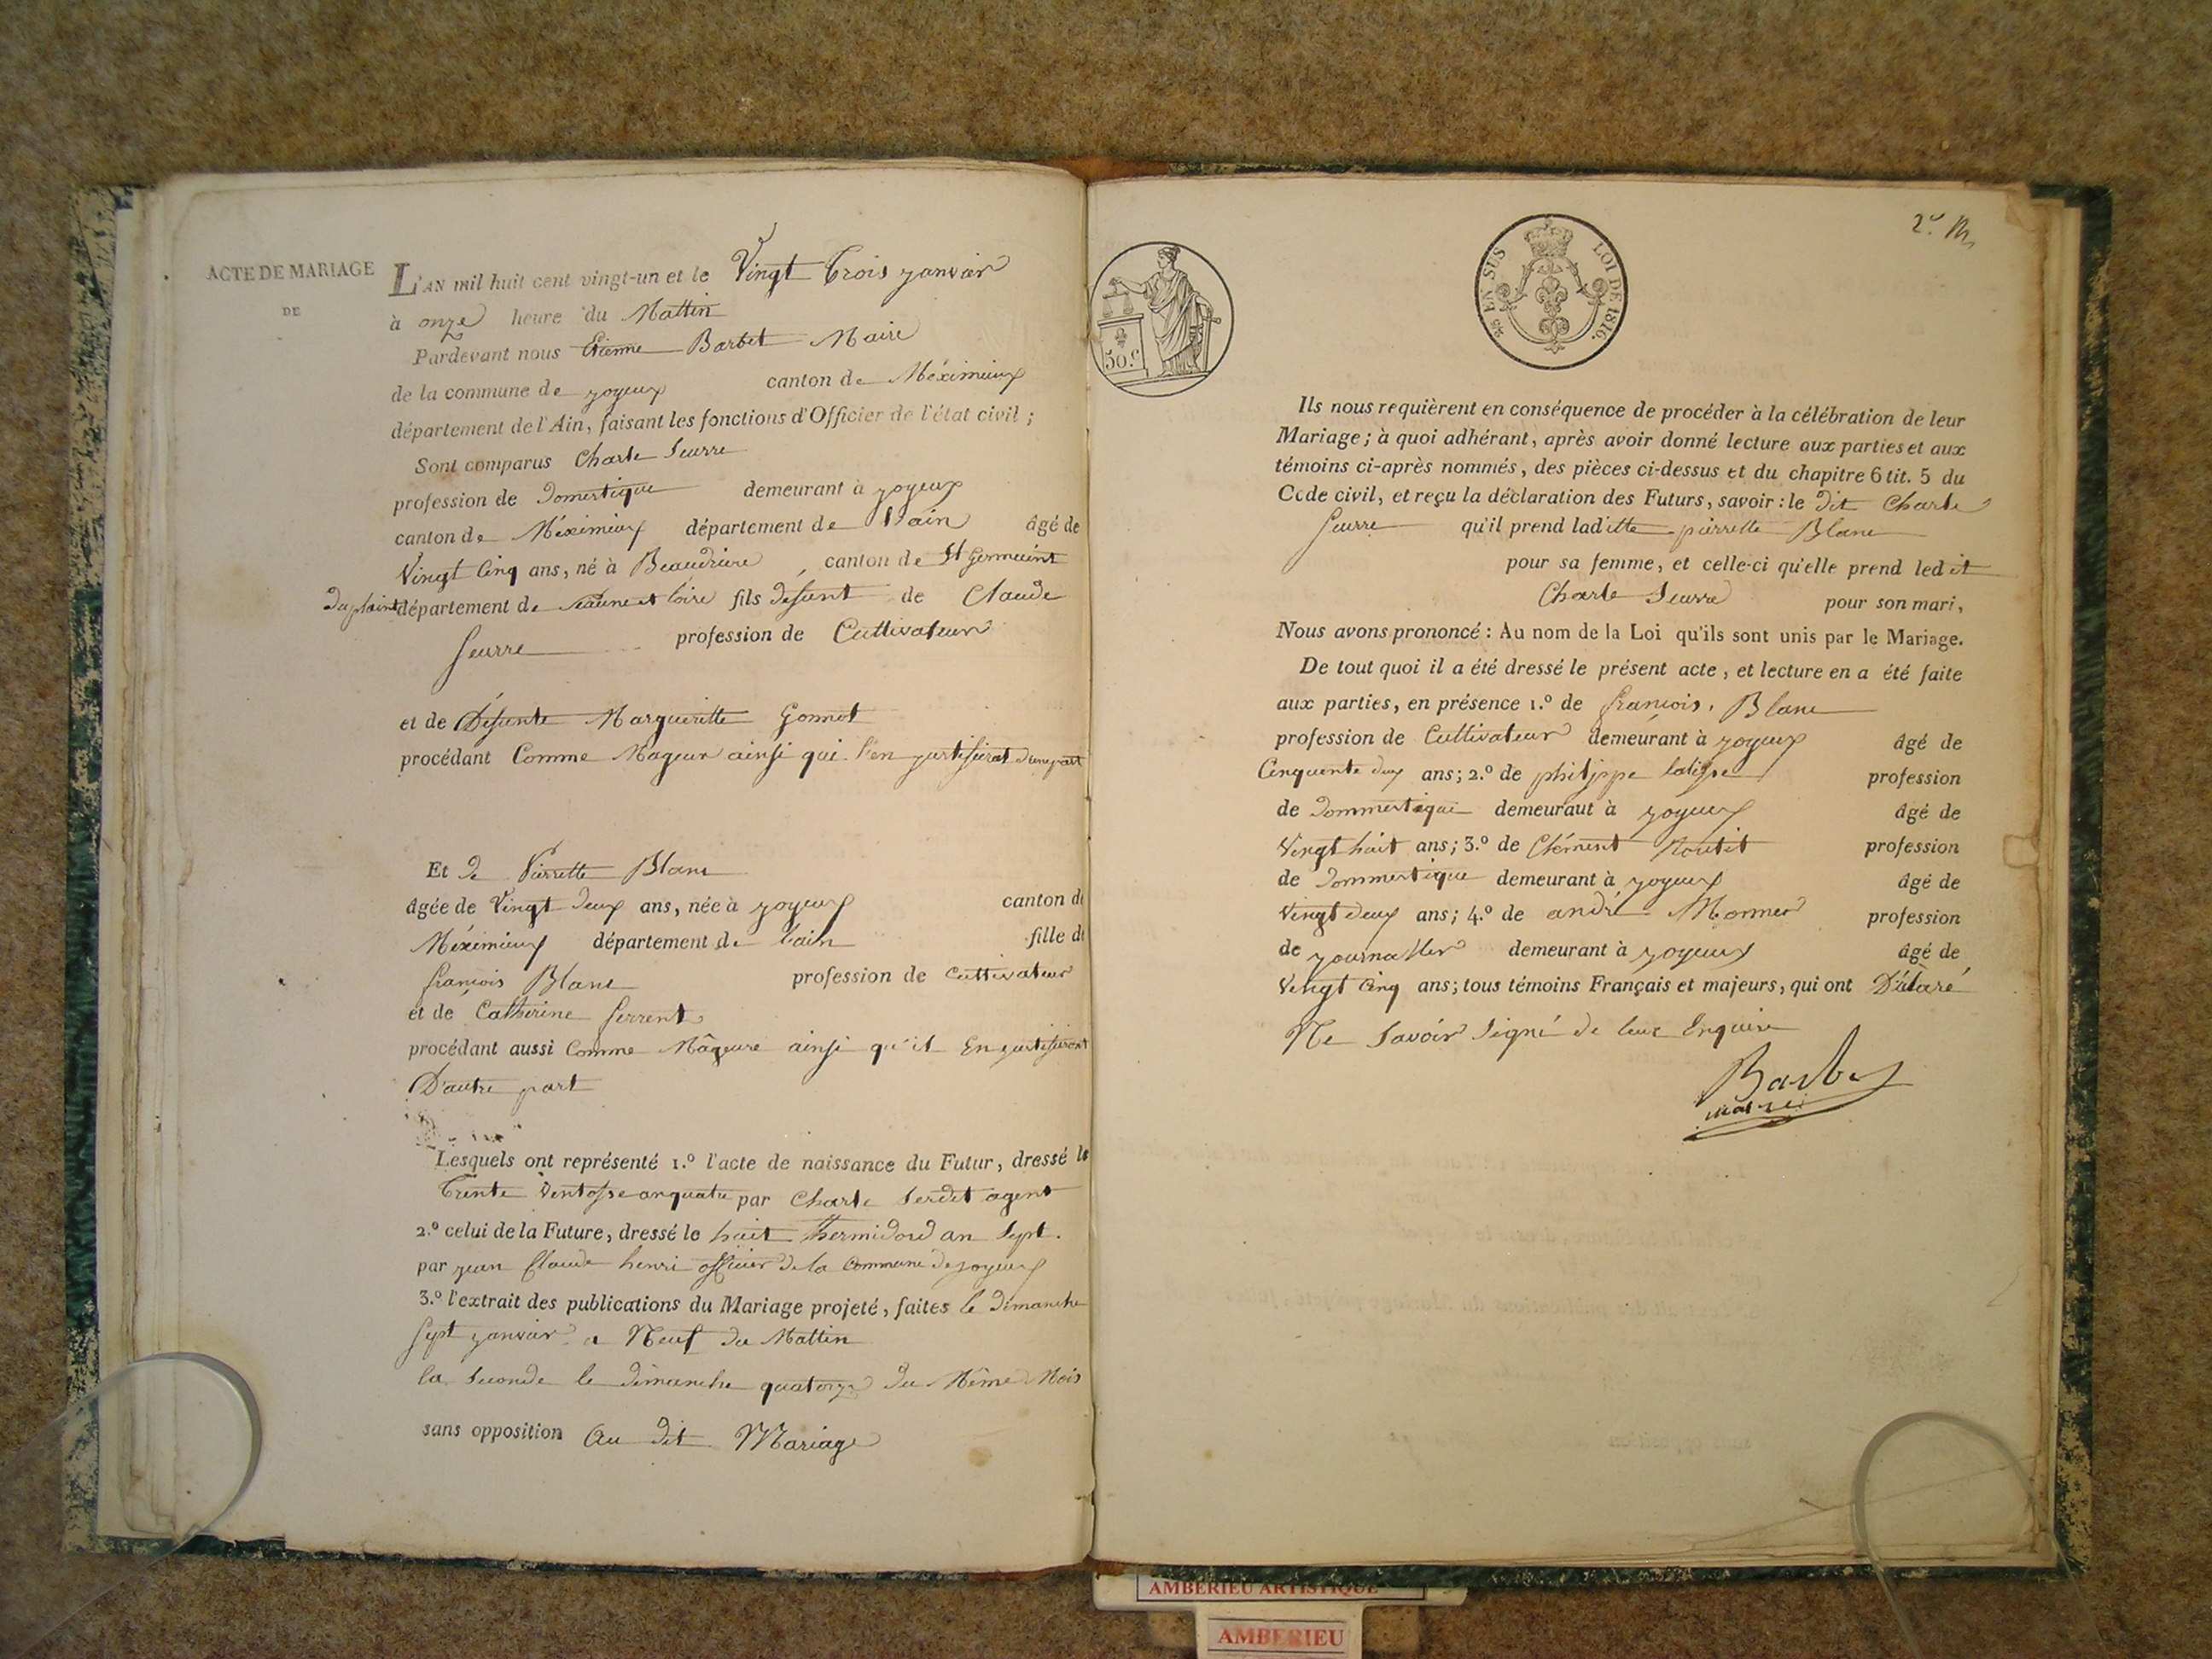 ACTE DE MARIAGE
DE
L'AN mil huit cent vingt-un et le Vingt Trois janvier
à onze heure du Mattin
Pardevant nous Etienne Barbet Maire
de la commune de joyeux canton de Méximieux
département de l'Ain, faisant les fonctions d'Officier de l'état civil ;
Sont comparus Charle Seurre
profession de Domestique demeurant à joyeux
canton de Méximieux département de l'ain âgé de
Vingt Cinq ans, né à Beaudriere, canton de St Germaint
Duplaint département de Seaune et loire fils défunt de Claude
Seurre profession de Cultivateur
et de Défunte Margueritte Gonnot
procédant Comme Mageur ainsi qui l'en justifierat d'une part
Et de Pierrette Blanc
âgée de Vingt Deux ans, née à joyeux canton de
Méximieux département de l'ain fille de
francois Blanc profession de Cultivateur
et de Catherine ferrent
procédant aussi Comme Mâgeure ainsi qu'il En justifieront
D'autre part
Lesquels ont représenté 1.º l'acte de naissance du Futur, dressé le
Trente Ventosse an quatre par Charle Serdet agent
2.º celui de la Future, dressé le huit Thermidord an Sept.
par jean Claude henri officier de la Commune de joyeux
3.º l'extrait des publications du Mariage projeté, faites le Dimanche
Sept janvier a Neuf du Mattin
la Seconde le Dimanche quatorze du Même Mois
sans opposition Au dit Mariage
2.e M,
50.c
25 EN SUS LOI DE 1816.
Ils nous requièrent en conséquence de procéder à la célébration de leur
Mariage ; à quoi adhérant, après avoir donné lecture aux parties et aux
témoins ci-après nommés, des pièces ci-dessus et du chapitre 6 tit. 5 du
Code civil, et reçu la déclaration des Futurs, savoir : le dit Charle
Seurre qu'il prend laditte pierrette Blanc
pour sa femme, et celle-ci qu'elle prend ledit
Charle Seurre pour son mari,
Nous avons prononcé : Au nom de la Loi qu'ils sont unis par le Mariage.
De tout quoi il a été dressé le présent acte, et lecture en a été faite
aux parties, en présence 1.º de francois, Blanc
profession de Cultivateur demeurant à joyeux âgé de
Cinquente deux ans ; 2.º de philippe profession
de Dommestique demeuraut à joyeux âgé de
Vingt huit ans ; 3.º de Clément profession
de Dommestique demeurant à joyeux âgé de
Vingt deux ans ; 4.º de andré Monner profession
de journallier demeurant à joyeux âgé de
Vingt Cinq ans ; tous témoins Français et majeurs, qui ont Déclaré
Ne Savoir Signé de leur Enquire
Barbet
maire
AMBERIEU ARTISTIQUE
AMBERIEU